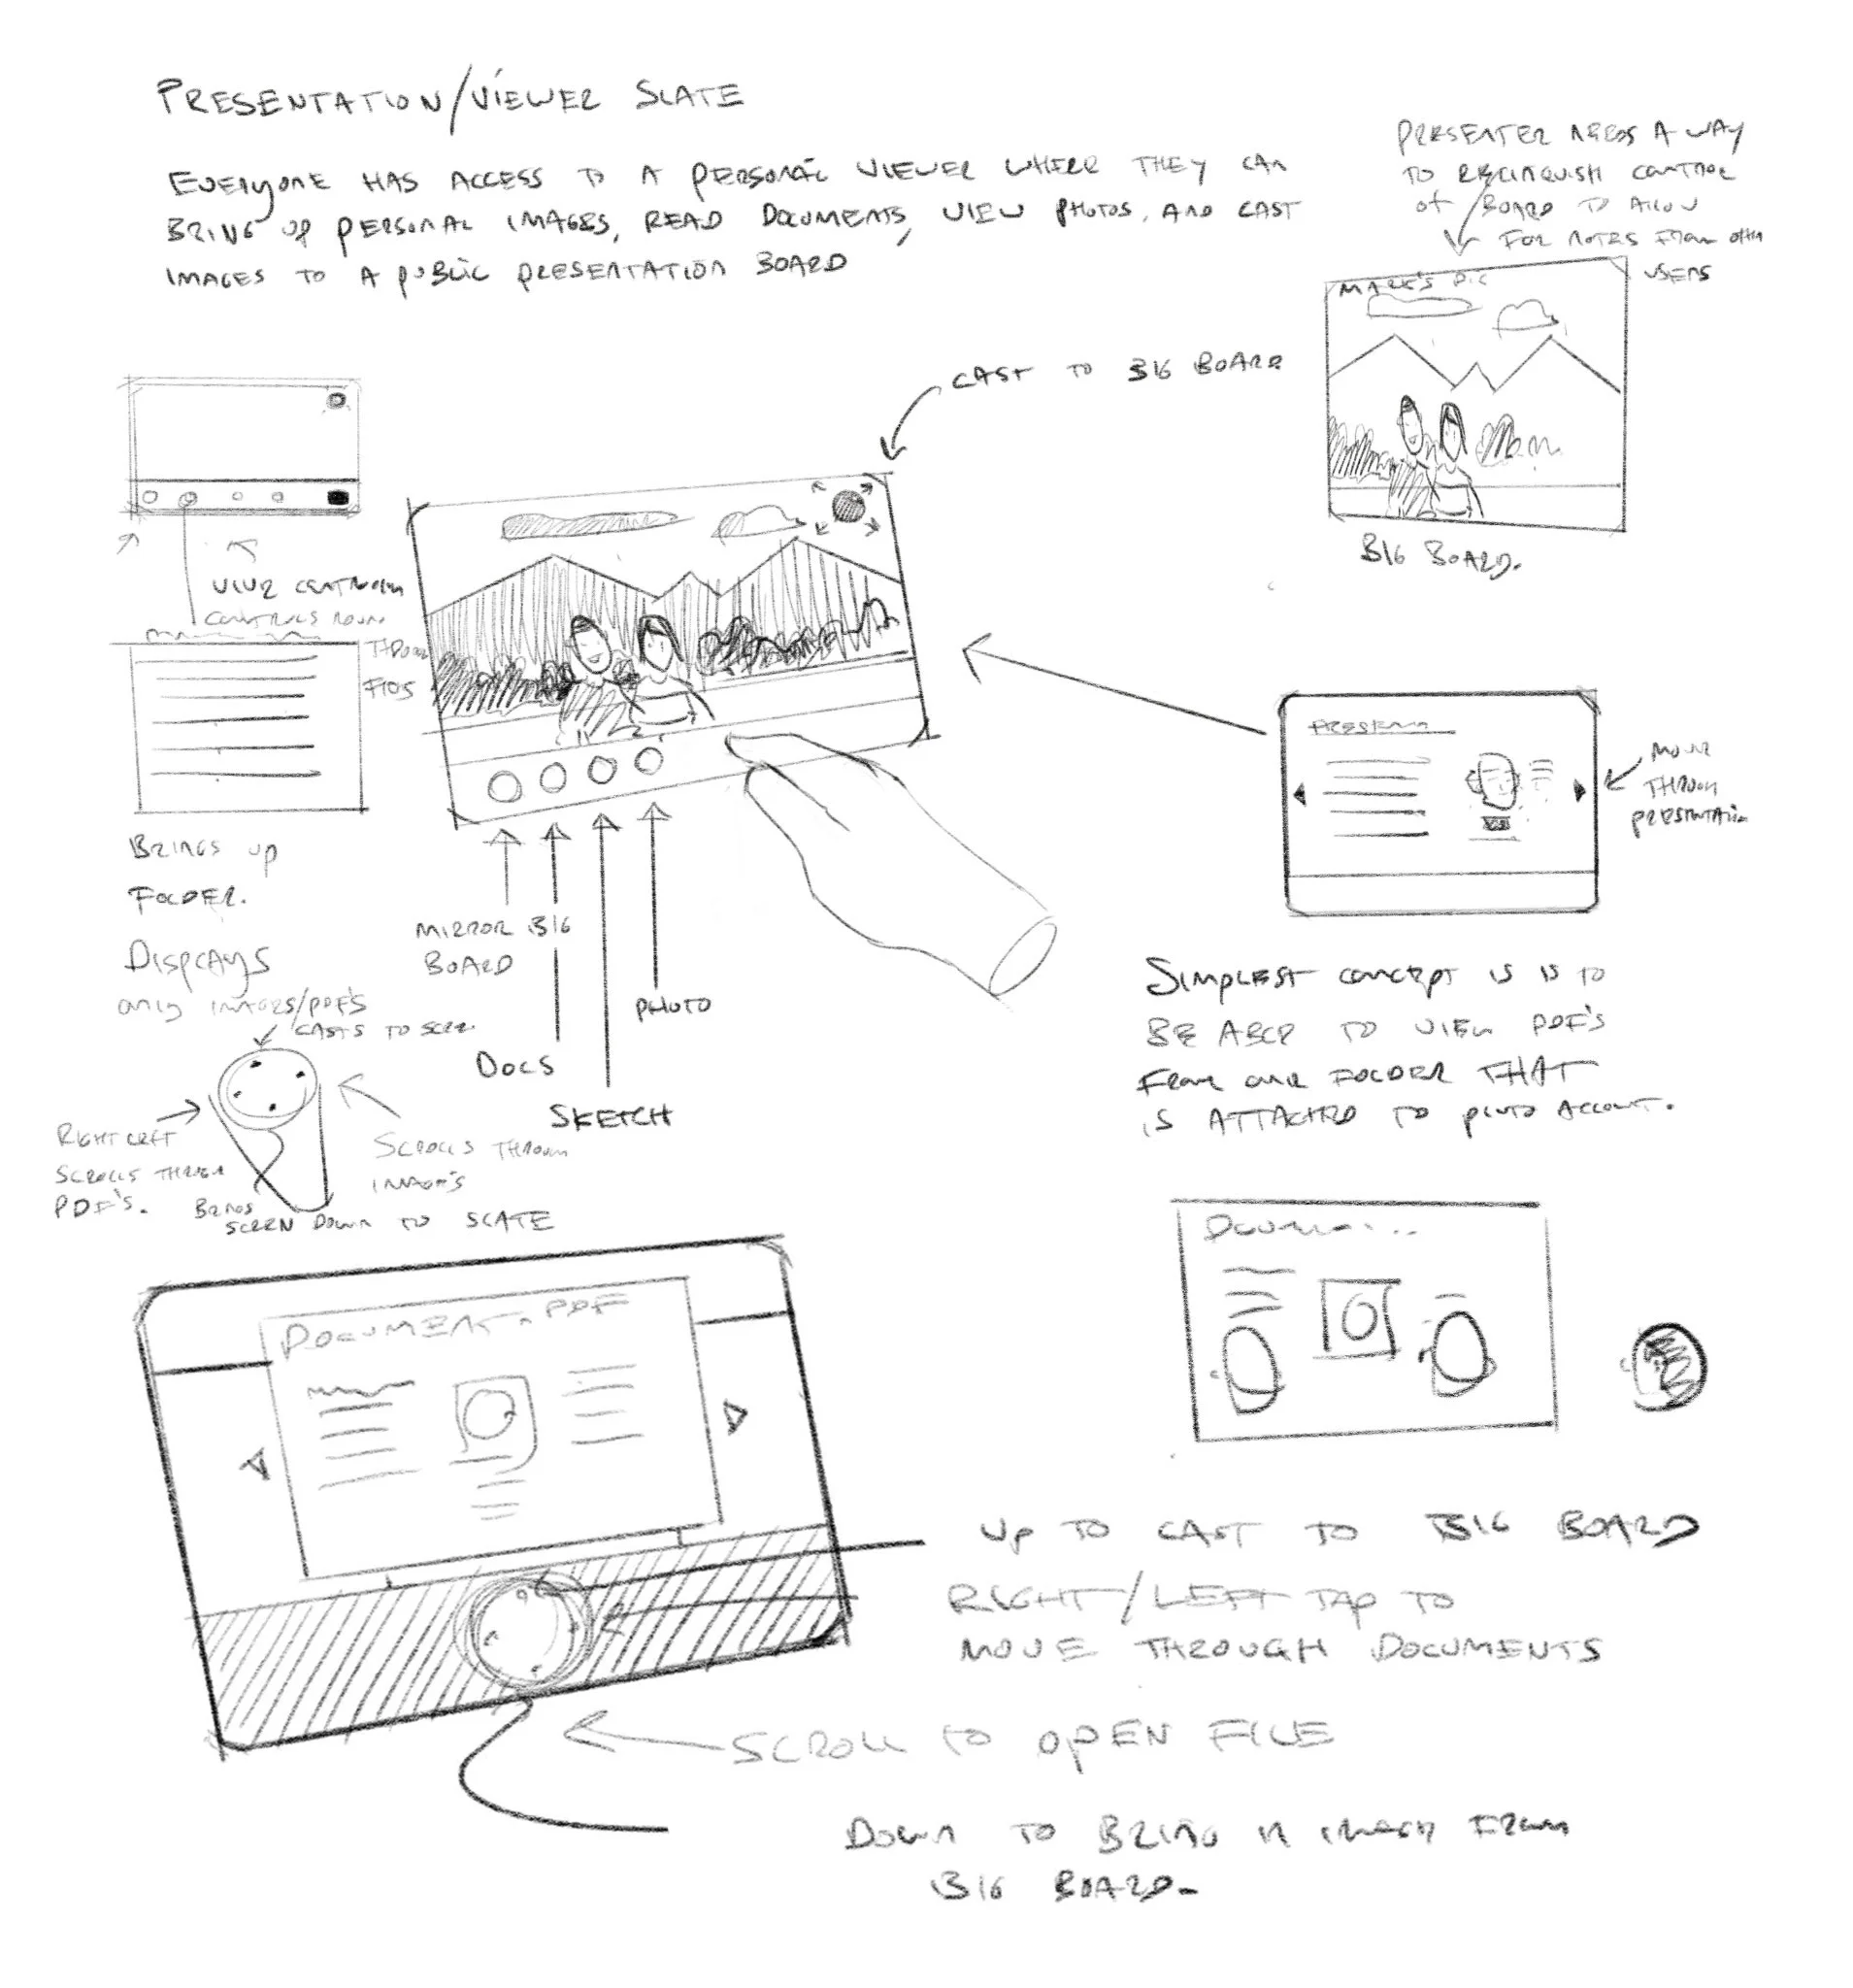 PRESENTATION/VIEWER SLATE
EVERYONE HAS ACCESS TO A PERSONAL VIEWER WHERE THEY CAN
BRING UP PERSONAL IMAGES, READ DOCUMENTS, VIEW PHOTOS, AND CAST
IMAGES TO A PUBLIC PRESENTATION BOARD
PRESENTER NEEDS A WAY
TO RELINQUISH CONTROL
OF BOARD TO ALLOW
FOR NOTES FROM OTHER
USERS
MARK'S PIC
BIG BOARD.
CAST TO BIG BOARD
CONTROLS
BRINGS UP
FOLDER.
DISPLAYS
ONLY IMAGES/PDF'S
CASTS TO
RIGHT LEFT
SCROLLS THROUGH
PDF'S.
SCROLLS THROUGH
IMAGES
BRINGS
SCREEN DOWN TO SLATE
MIRROR BIG
BOARD
DOCS
SKETCH
PHOTO
MOVE
THROUGH
PRESENTATION
SIMPLEST CONCEPT IS IS TO
BE ABLE TO VIEW PDF'S
FROM ONE FOLDER THAT
IS ATTACHED TO PLUTO ACCOUNT.
DOCUMENT.PDF
UP TO CAST TO BIG BOARD
RIGHT/LEFT TAP TO
MOVE THROUGH DOCUMENTS
SCROLL TO OPEN FILE
DOWN TO BRING IN IMAGE FROM
BIG BOARD.